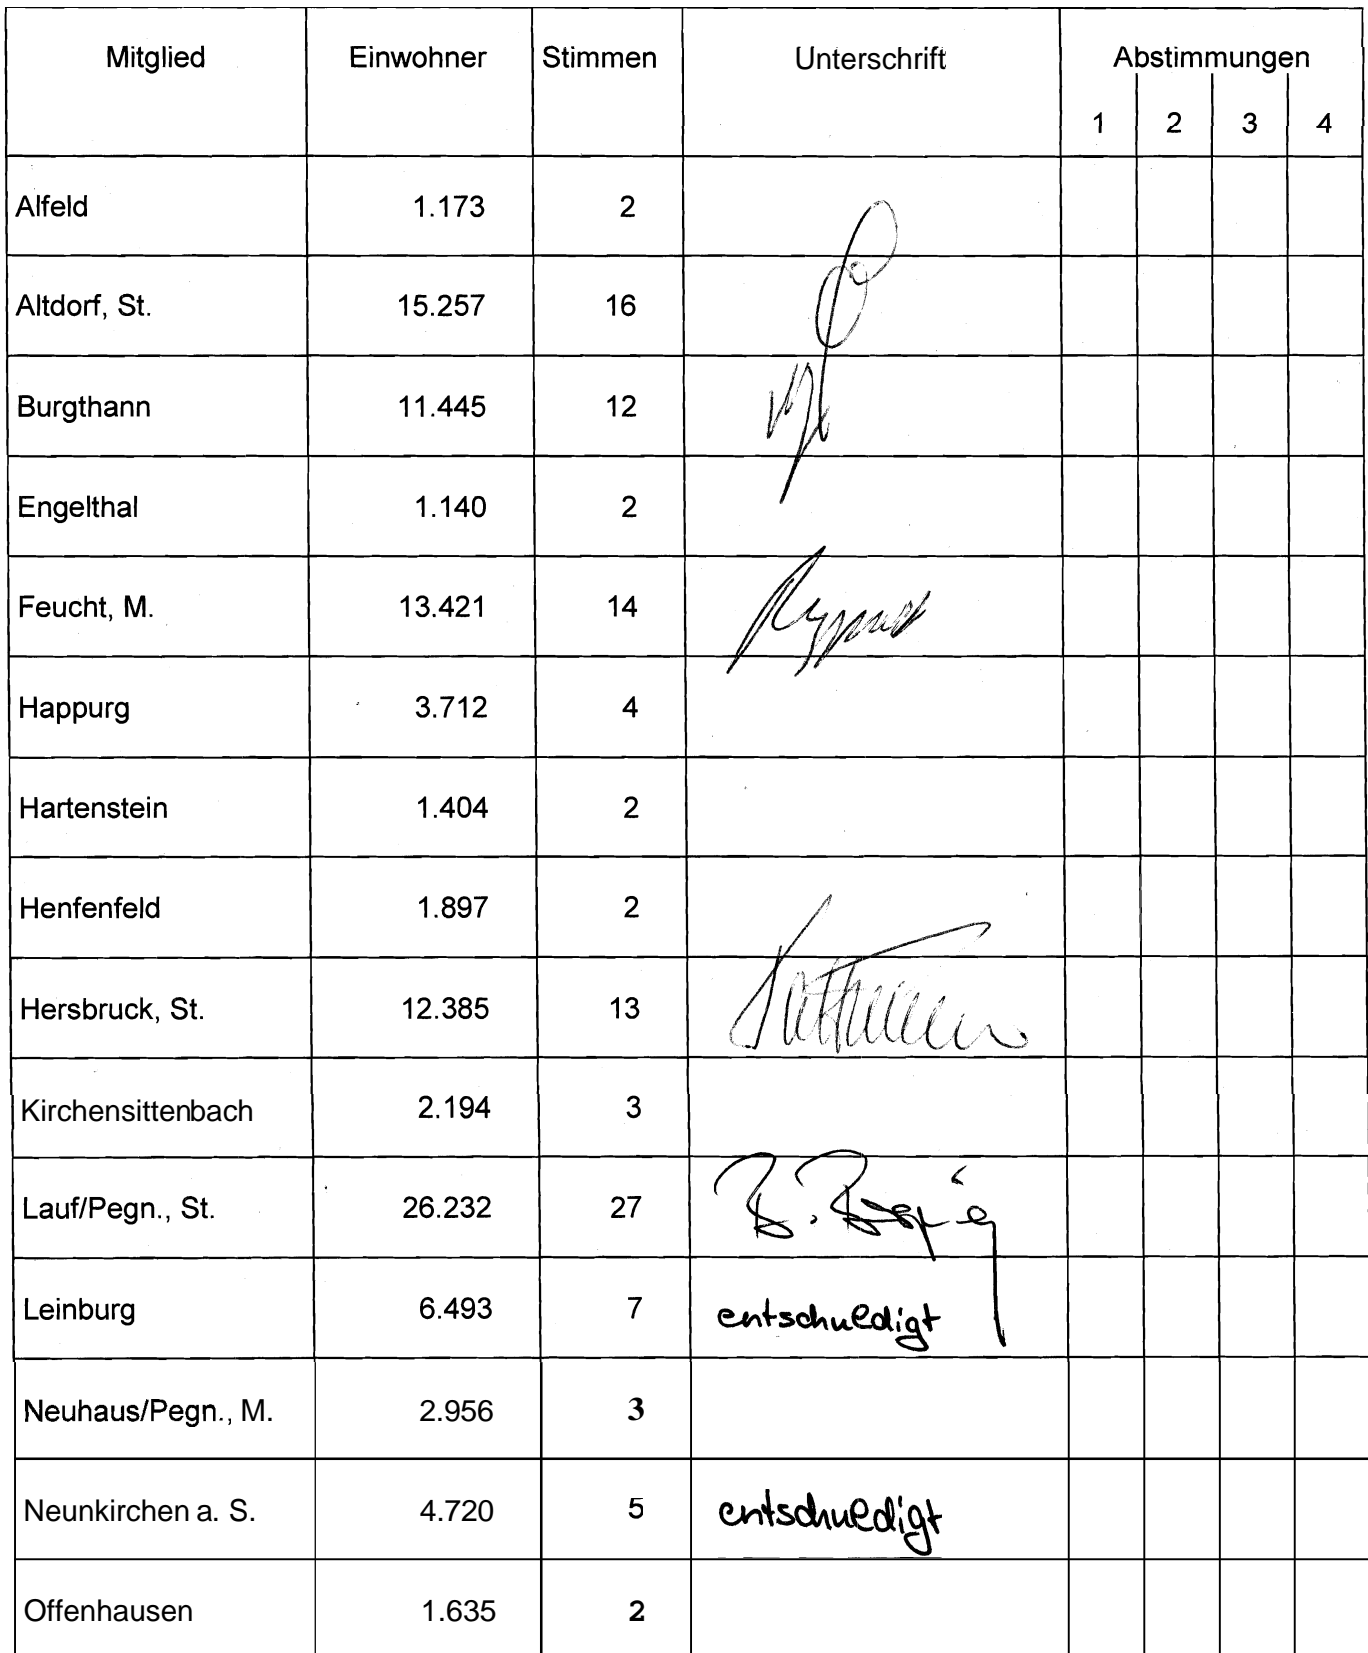 Mitglied Einwohner Stimmen Unterschrift Abstimmungen
1 2 3 4
Alfeld 1.173 2
Altdorf, St. 15.257 16
Burgthann 11.445 12
Engelthal 1.140 2
Feucht, M. 13.421 14
Happurg 3.712 4
Hartenstein 1.404 2
Henfenfeld 1.897 2
Hersbruck, St. 12.385 13
Kirchensittenbach 2.194 3
Lauf/Pegn., St. 26.232 27
Leinburg 6.493 7 entschuldigt
Neuhaus/Pegn., M. 2.956 3
Neunkirchen a. S. 4.720 5 entschuldigt
Offenhausen 1.635 2